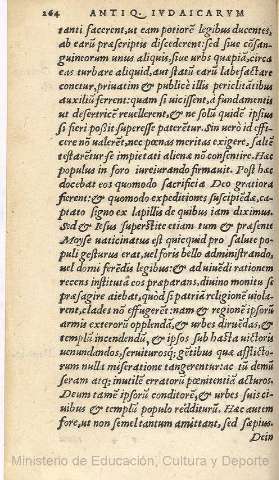 264 ANTIQ. IVDAICARVM
tanti facerent, ut eam potiorē legibus ducentes,
ab earū præscriptis discederent: sed siue cōsan-
guineorum unus aliquis, siue urbs quæpiā, circa
eas turbare aliquid, aut statū earū labefactare
conetur, priuatim & publicè illis periclitātibus
auxiliū ferrent: quam si uicissent, à fundamentis
ut desertricē reuellerent, & ne solū quidē ipsius
si fieri posit superesse paterētur. Sin uerò id effi-
cere nō ualerēt, nec pœnas meritas exigere, saltē
testarētur se impietati alienæ nō consentire. Hæc
populus in foro iureiurando firmauit. Post hæc
docebat eos quomodo sacrificia Deo gratiora
fierent: & quomodo expeditiones suscipiēdæ, ca-
ptato signo ex lapillis de quibus iam diximus.
Sed & Iesus superstite etiam tum & præsente
Moyse uaticinatus est quicquid pro salute po-
puli gesturus erat, uel foris bello administrando,
uel domi ferēdis legibus: & ad uiuēdi rationem
recens institutā eos præparans, diuino monitu se
præsagire aiebat, quòd si patriā religionē uiola-
rent, clades nō effugerēt: nam & regionē ipsorū
armis exterorū opplendā, & urbes diruēdas, &
templū incendendū, & ipsos sub hasta uictoris
uenundandos, seruiturosq; gētibus quæ afflicto-
rum nulla miseratione tangerentur: ac tū demū
seram atq; inutilē erratorū pœnitentiā acturos.
Deum tamē ipsorū conditorē, & urbes suis ci-
uibus & templū populo redditurū. Hæc autem
fore, ut non semel tantum amittant, sed sæpius.
Dein
Ministerio de Educación, Cultura y Deporte